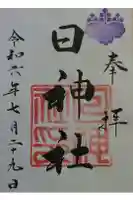 奉拝
日神社
令和六年七月二十九日